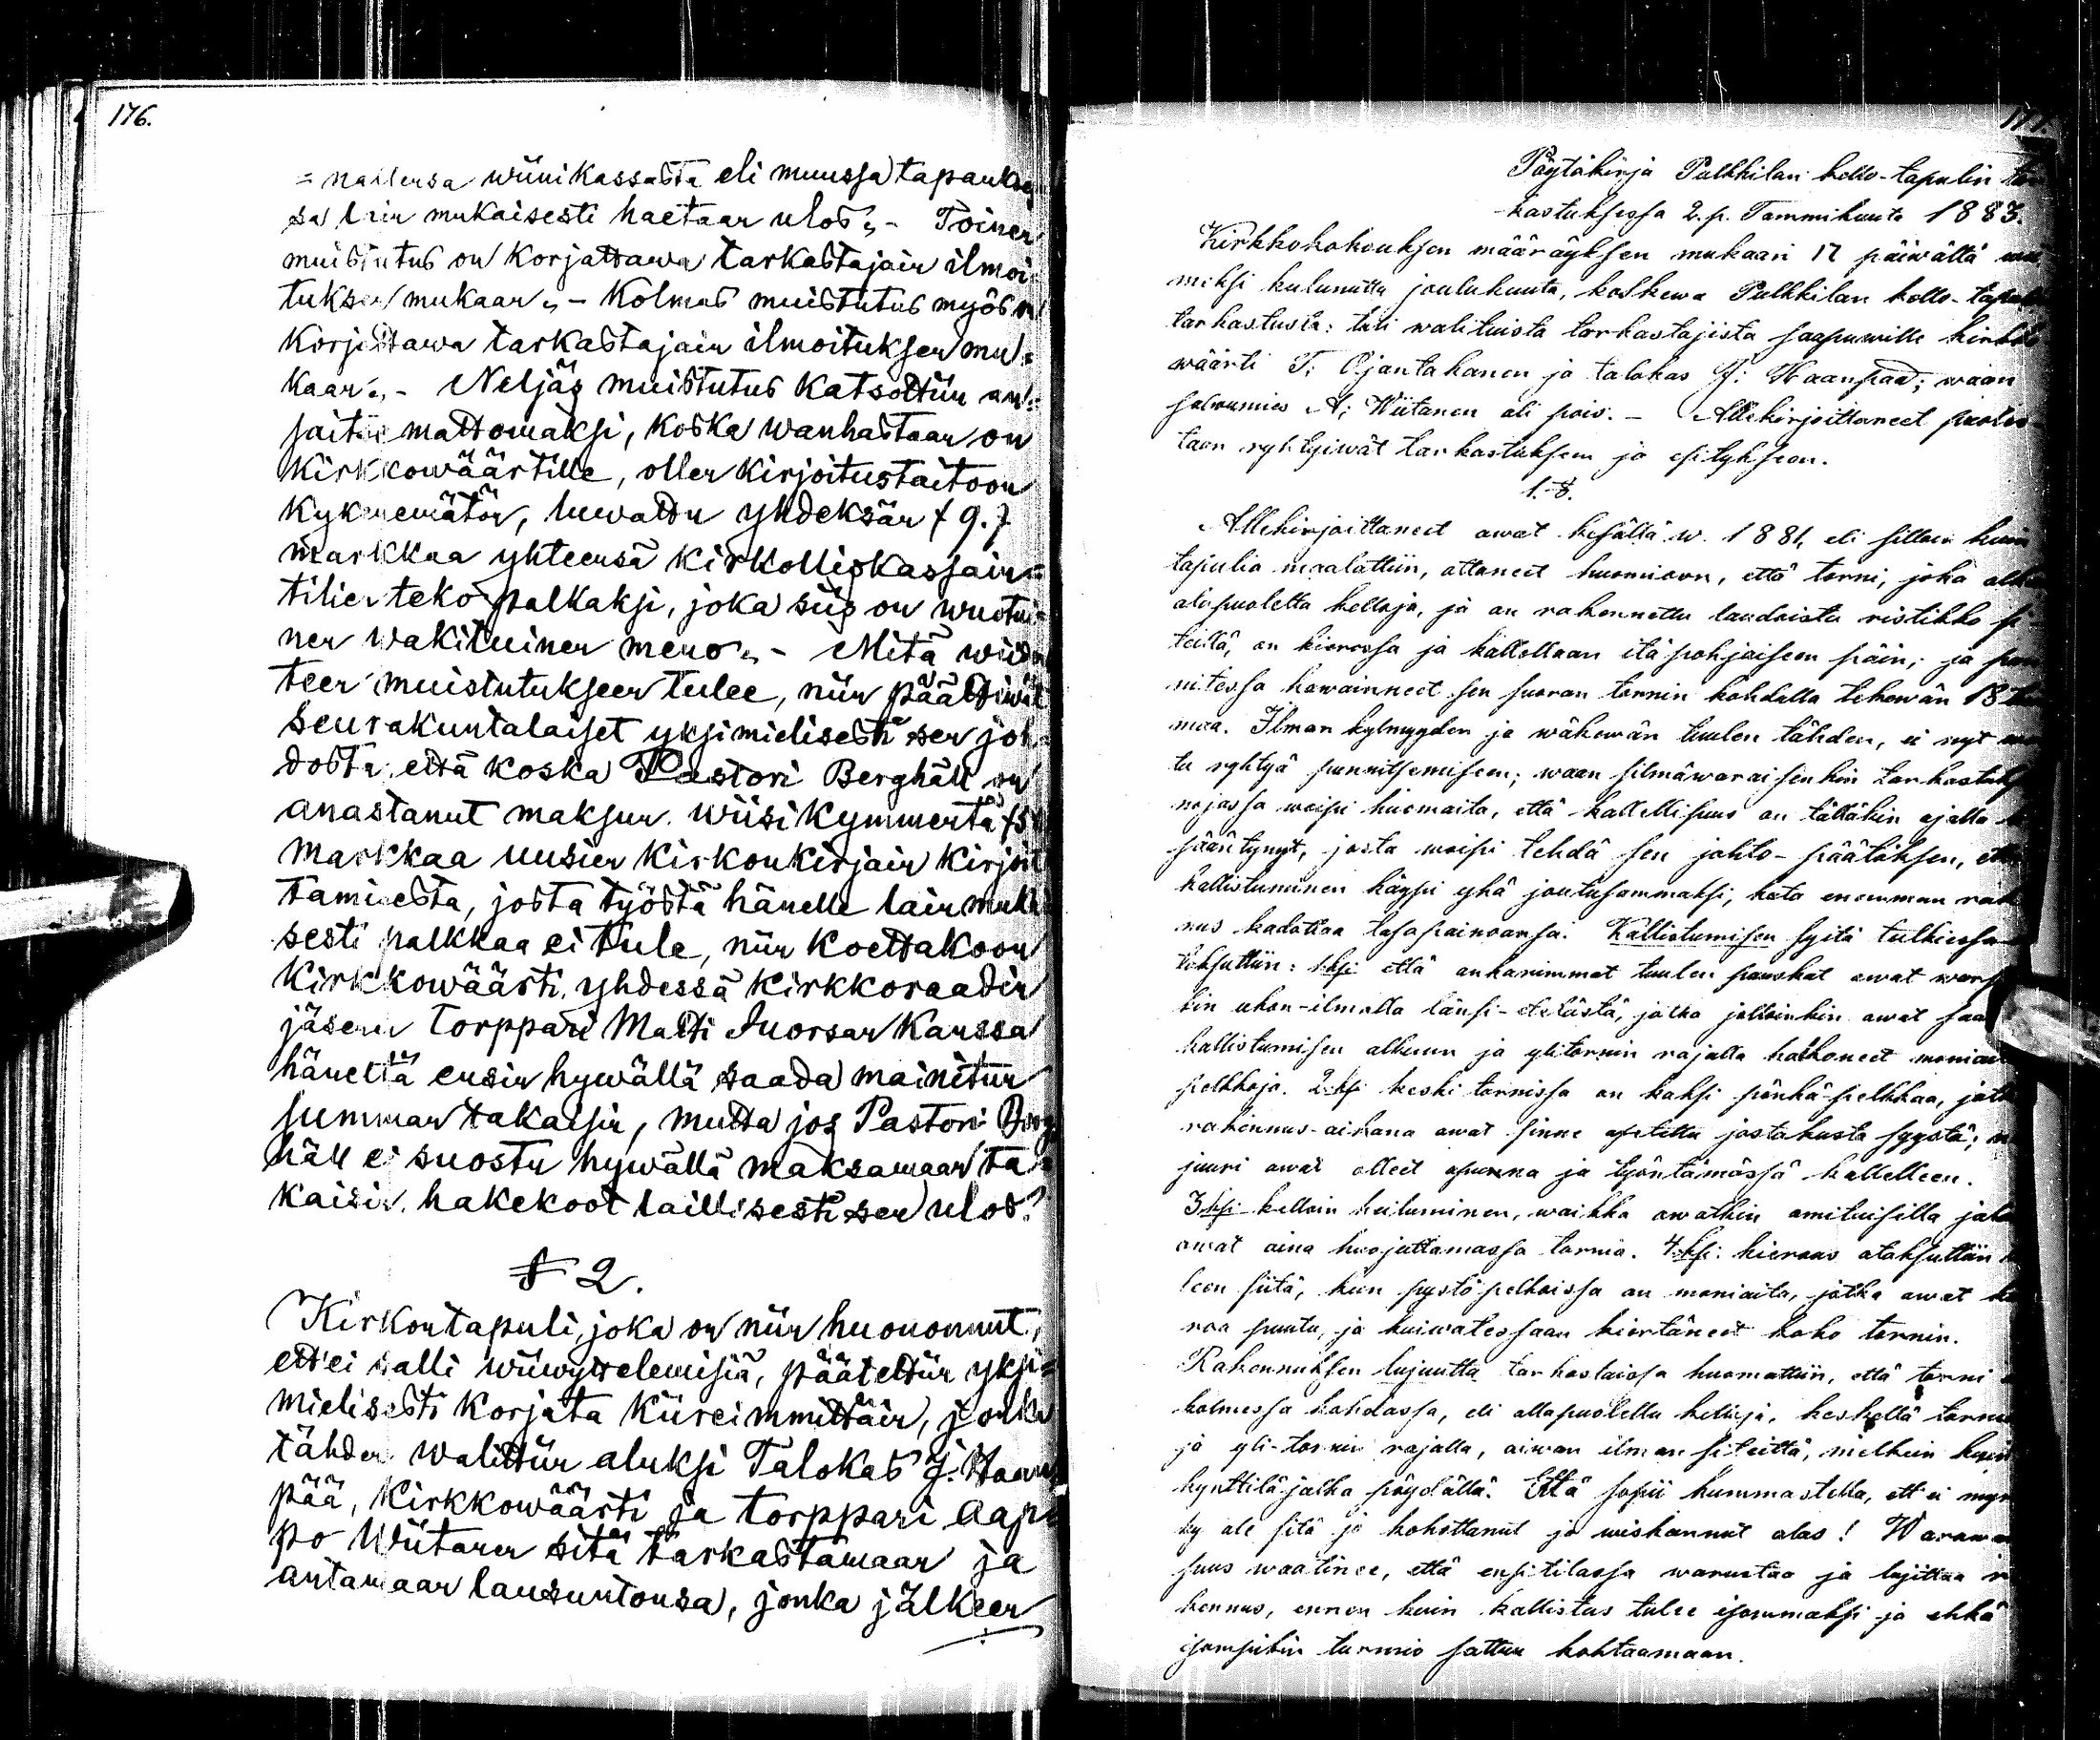 176.
= nallensa wiinikassasta eli muussa tapaukses
sa lain mukaisesti haetaan ulos„ - Toinen
muistutus on korjattawa tarkastajain ilmoi
tuksen mukaan„ - Kolmas muistutus myös on
korjattawa tarkastajain ilmoituksen mu=
kaan„ - Neljäs muistutus katsottiin an=
saitsemattomaksi, koska wanhastaan on
kirkkowäärtille, ollen kirjoitustaitoon
kykenemätön, luwattu yhdeksän / 9. /
markkaa yhteensä kirkolliskassain=
tilien teko palkaksi, joka siis on wuotu=
nen wakituinen meno„ - Mitä wiiden
teen muistutukseen tulee, niin päättiwät
seurakuntalaiset yksimielisesti sen joh
dosta: että koska Pastori Berghäll on
anastanut maksun wiisikymmentä /50
markkaa uusien kirkonkirjain kirjoit
tamisesta, josta työstä hänelle lain mukai
sesti palkkaa ei tule, niin koettakoon
kirkkowäärti yhdessä kirkkoraadin
jäsenen torppari Matti Juorsan kanssa
häneltä ensin hywällä saada mainitun
summan takaisin, mutta jos Pastori Berg
häll ei suostu hywällä maksamaan ta=
kaisin hakekoot laillisesti sen ulos.
§ 2.
Kirkontapuli, joka on niin huonommut,
ett'ei salli wiiwyttelemisiä, päätettiin yksi=
mielisesti korjata kiireimmittäin, jonka
tähden walittiin aluksi Talokas J. Haan
pää, Kirkkowäärti ja torppari Aap
po Wiitanen sitä tarkastamaan ja
antamaan lausuntonsa, jonka jälkeen
177.
Pöytäkirja Pulkkilan kello-tapulin tar
kastuksessa 2. p. Tammikuuta 1883.
Kirkkokokouksen määräyksen mukaan 17 päiwältä wii
meksi kulunutta joulukuuta, koskewa Pulkkilan kello-tapulin
tarkastusta: tuli walituista tarkastajista saapuwille kirkko
wäärti T. Ojantakanen ja talokas J. Haanpää; waan
salwumies A. Wiitanen oli pois. - Allekirjoittaneet puoles
taan ryhtyiwät tarkastukseen ja esitykseen.
1. §.
Allekirjoittaneet owat kesällä w. 1881, eli silloin kuin
tapulia maalattiin, ottaneet huomioon, että torni, joka alkaa
alapuolelta kelloja, ja on rakennettu laudoista ristikko si
teillä, on kierossa ja kallellaan itäpohjaiseen päin; ja pun
nitessa hawainneet sen suoran tornin kohdalla tekewän 18 tuu
maa. Ilman kylmyyden ja wäkewän tuulen tähden, ei nyt
tu ryhtyä punnitsemiseen; waan silmäwaraisenkin tarkastuk
nojassa woipi huomaita, että kallellisuus on tälläkin ajalla
sääntynyt, josta woipi tehdä sen johto-päätöksen, että
kallistuminen käypi yhä joutusammaksi, kuta enemmän rak
nus kadottaa tasapainoansa. Kallistumisen syitä tutkiessa
toksuttiin: 1ksi että ankarimmat tuulen puuskat owat wars
kin ukon-ilmalla länsi-etelästä, jotka jolloinkin owat saa
kallistumisen alkuun ja ylitornin rajalla katkoneet moniaita
pelkkoja. 2:ksi keski tornissa on kaksi pönkä-pelkkaa, jotk
rakennus-aikana owat sinne asetettu jostakusta syystä;
juuri owat olleet apunna ja työntämässä kallelleen.
3ksi kelloin heiluminen, waikka owatkin omituisilla jal
owat aina huojuttamassa tornia. 4:ksi kieroos otaksuttiin
leen siitä, kun pystöpelkoissa on moniaita, jotka owat kie
roa puuta, ja kuiwatessaan kiertäneet koko tornin.
Rakennuksen lujuutta tarkastaissa huomattiin, että torni
kolmessa kohdassa, eli allapuolella kelloja, keskeltä tornia
ja yli-tornin rajalla, aiwan ilman siteittä, melkein kuin
kynttiläjalka pöydällä. Että sopii kummastella, ett ei myrs
ky ole sitä jo kohottanut ja wiskannut alas! Warawai
suus waatinee, että ensitilassa warustaa ja lujittaa ra
kennus, ennen kuin kallistus tulee isommaksi ja ehkä
isompikin turmio sattuu kohtaamaan.